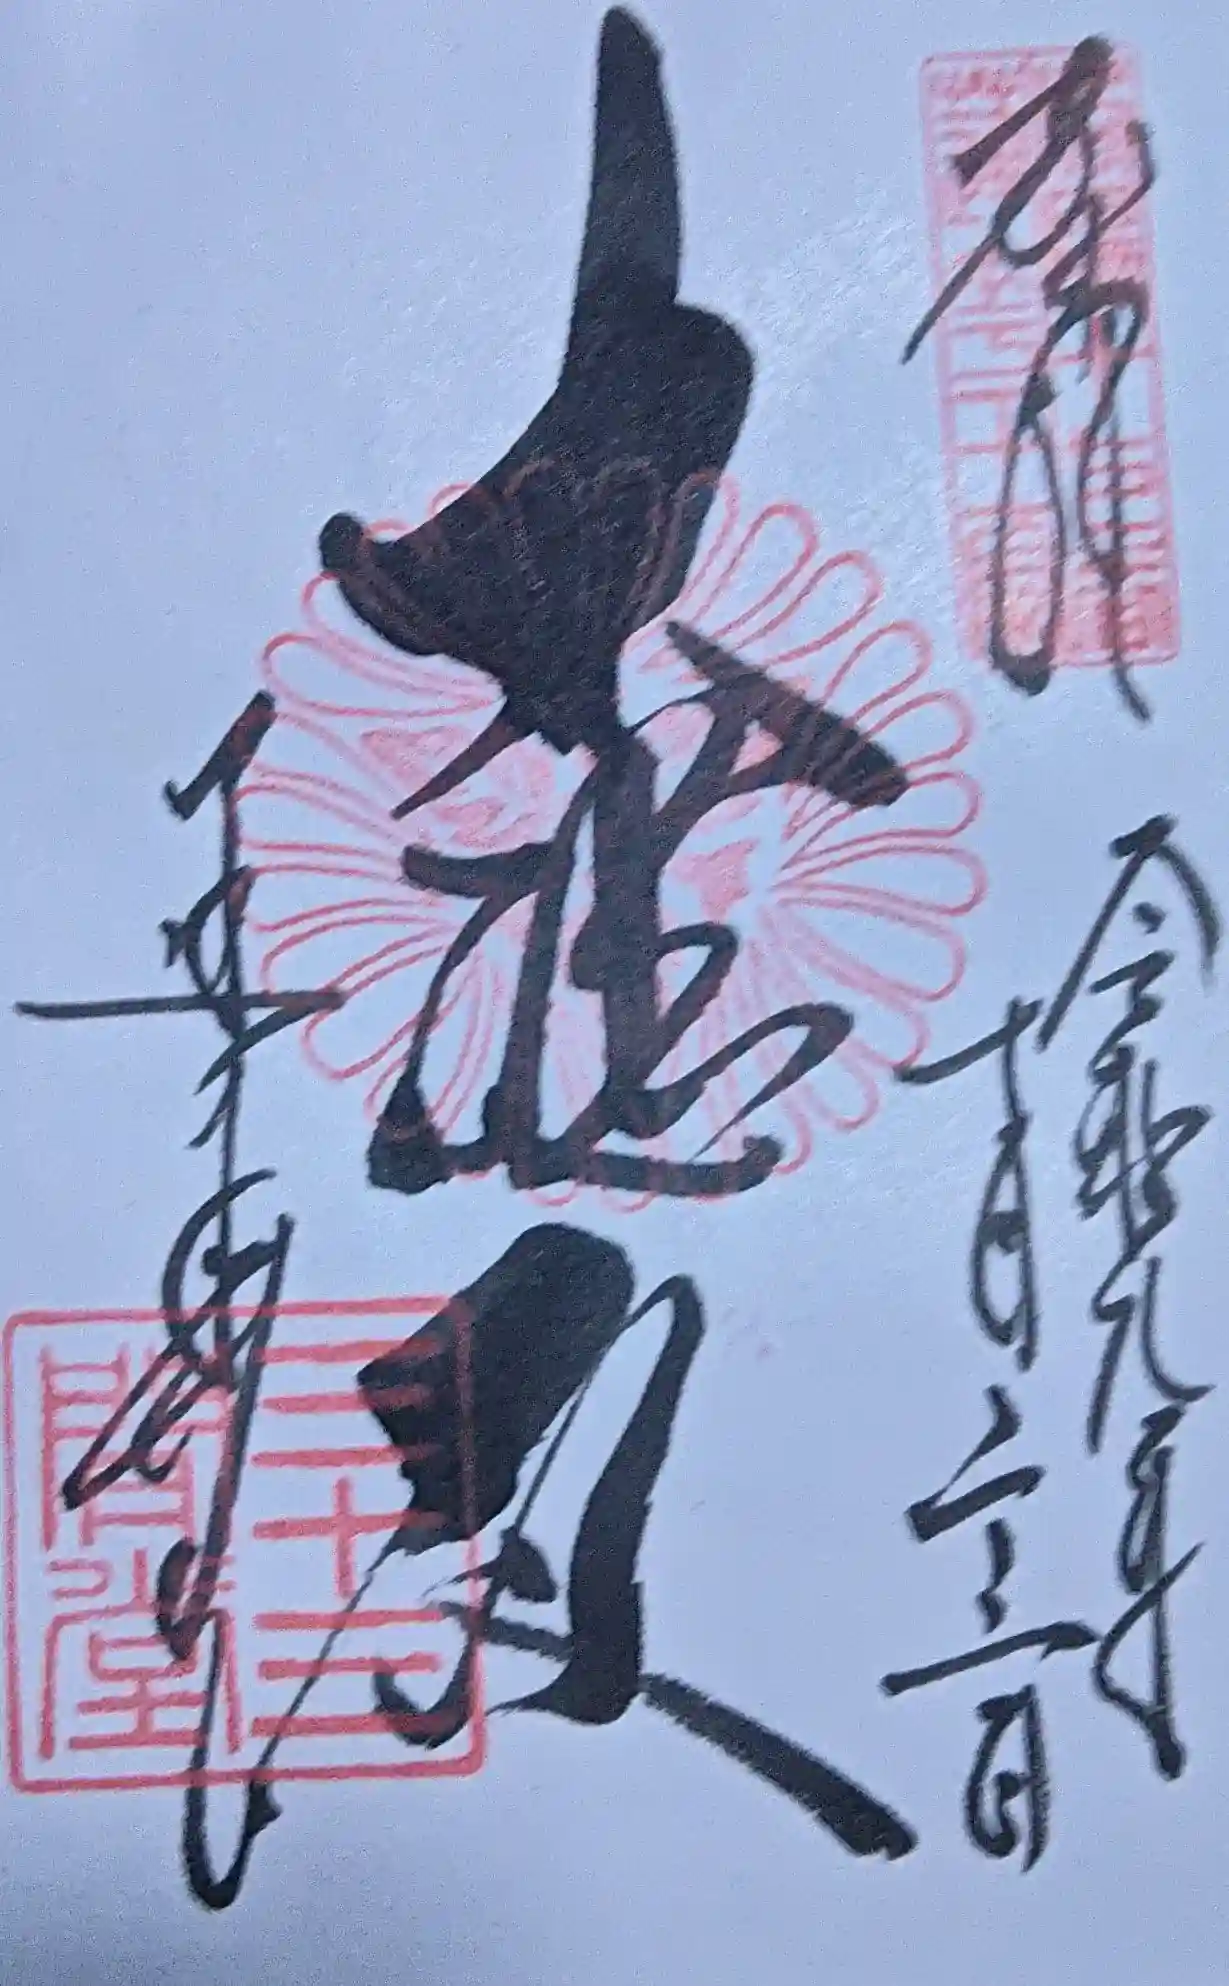 奉拝
令和元年
十月二三日
大悲殿
三十三間堂
三十三
間堂